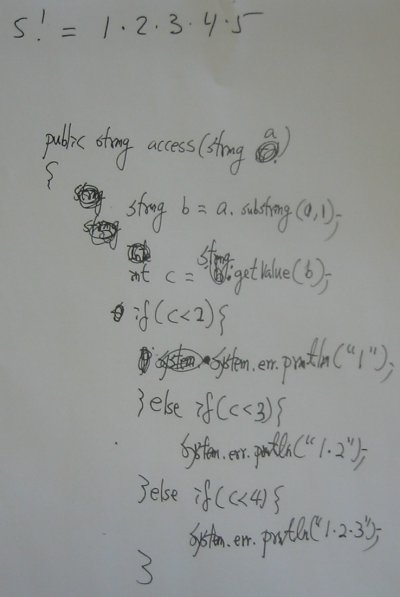 5! = 1·2·3·4·5
public string access(string a)
{
string b = a.substring(0,1);
int c = string.getValue(b);
if(c<2){
system.err.println("1");
}else if(c<3){
system.err.println("1·2");
}else if(c<4){
system.err.println("1·2·3");
}